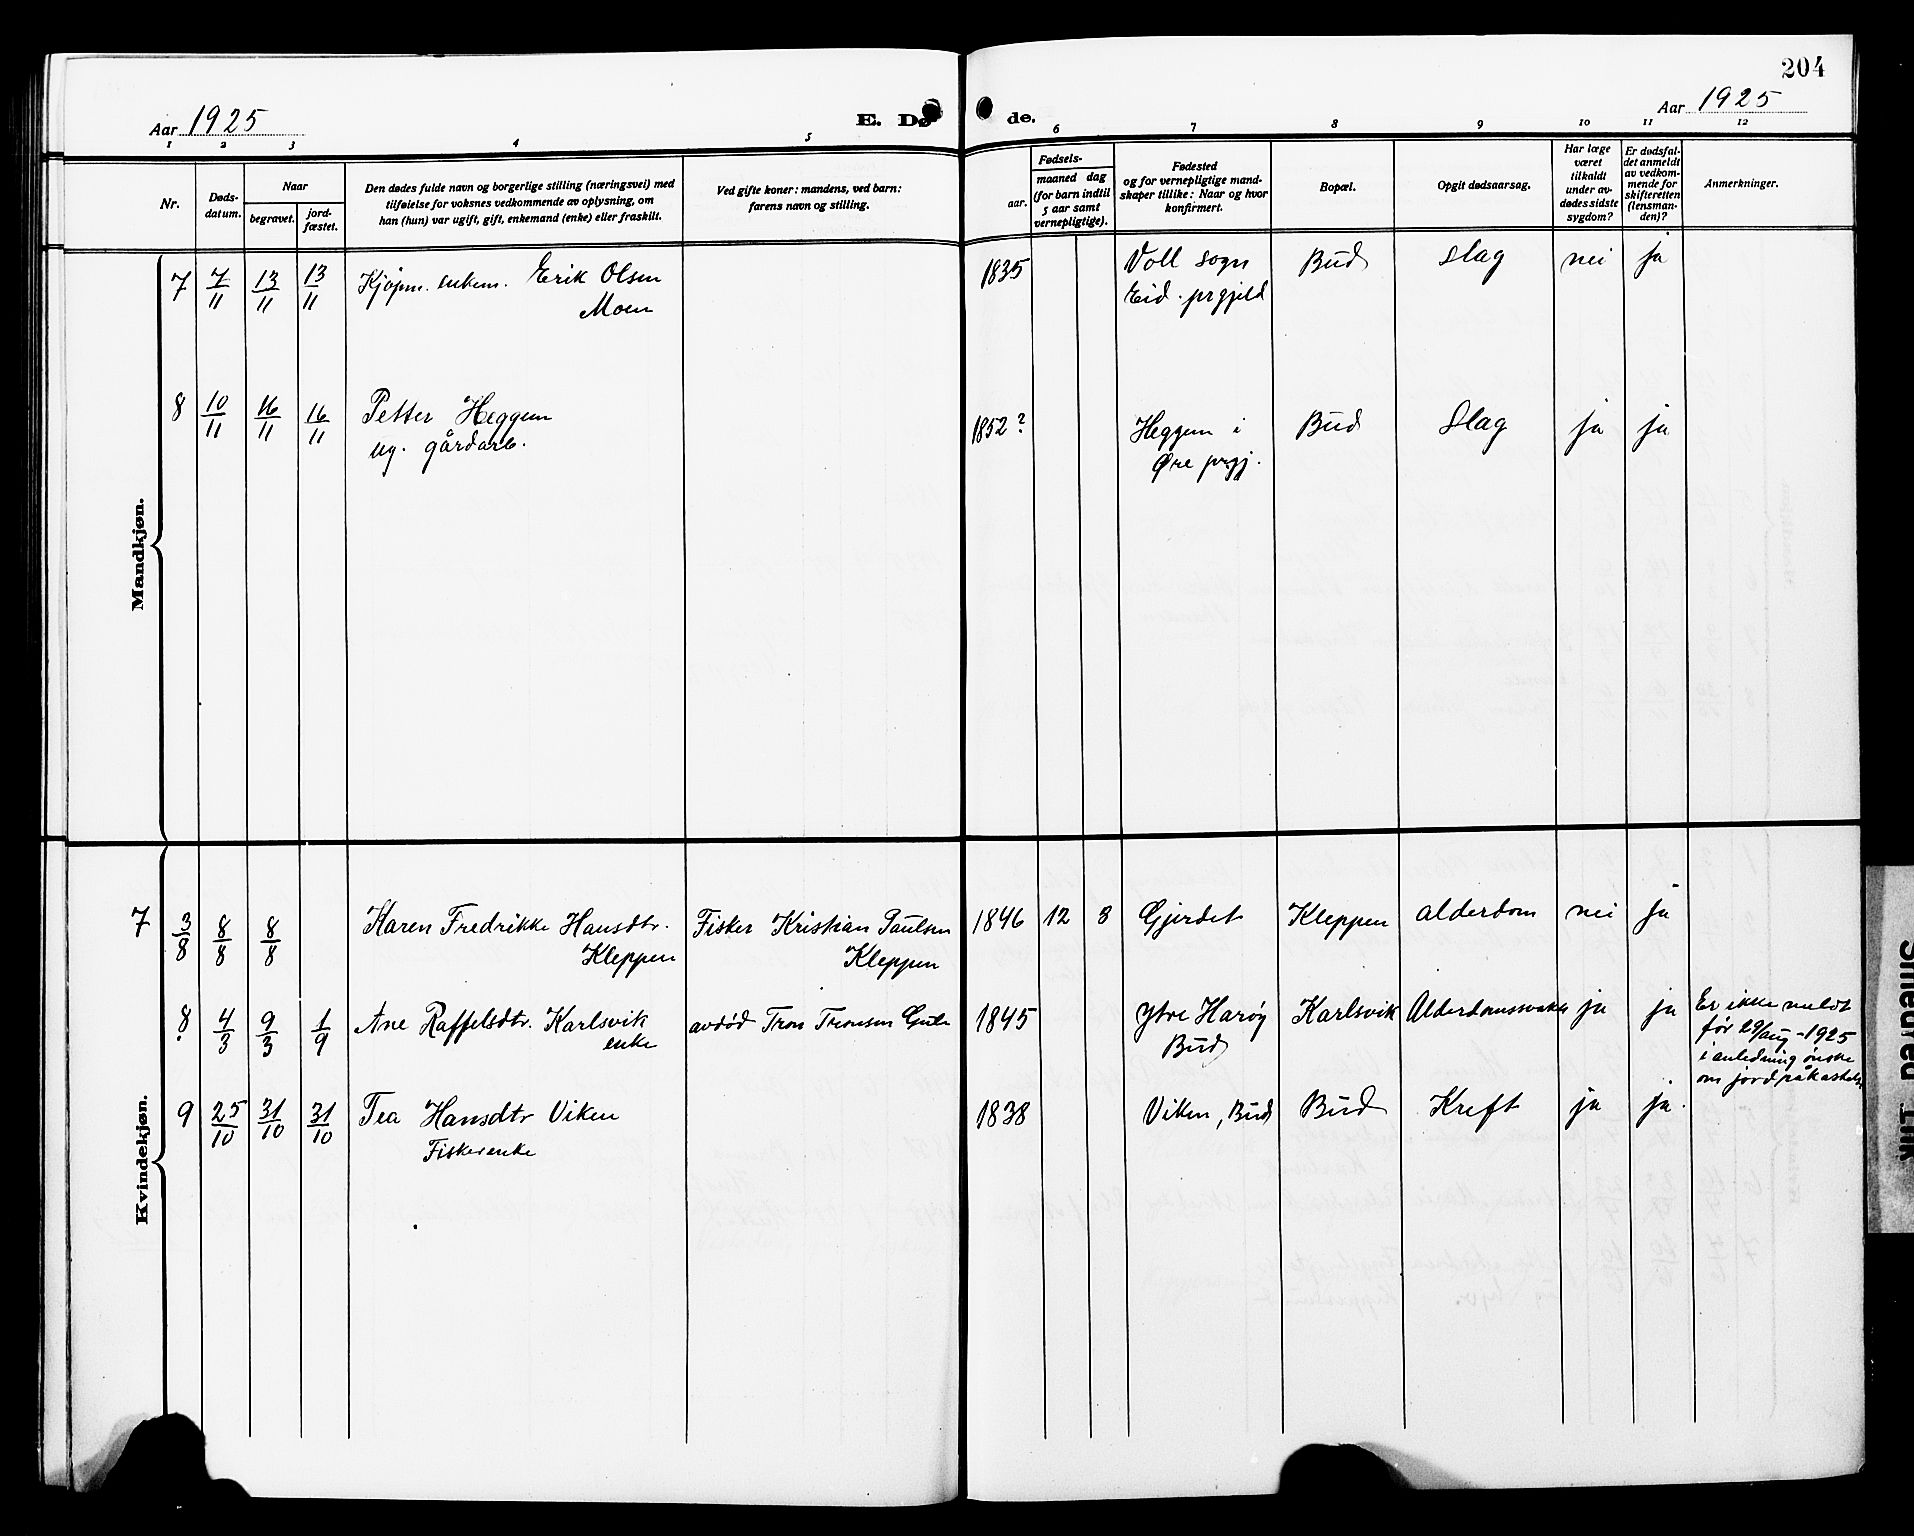 204
Aar 1925
E. Dø
de.
Aar 1925
1 2 3 4 5 6 7 8 9 10 11 12
Nr.
Døds-
datum.
Naar
begravet.
jord-
fæstet.
Den dødes fulde navn og borgerlige stilling (næringsvei) med
tilføielse for voksnes vedkommende av oplysning, om
han (hun) var ugift, gift, enkemand (enke) eller fraskilt.
Ved gifte koner: mandens, ved barn:
farens navn og stilling.
Fødsels-
aar.
maaned dag
(for barn indtil
5 aar samt
vernepligtige).
Fødested
og for vernepligtige mand-
skaper tillike: Naar og hvor
konfirmert.
Bopæl.
Opgit dødsaarsag.
Har læge
været
tilkaldt
under av-
dødes sidste
sygdom?
Er dødsfal-
det anmeldt
av vedkom-
mende for
skifteretten
(lensman-
den)?
Anmerkninger.
Mandkjøn.
7 7/11 13/11 13/11 Kjøpm. enkem. Erik Olsen 1835 Voll sogn Bud Slag nei ja
Moen Eid. prgjeld
8 10/11 16/11 16/11 Petter Heggem 1852? Heggem i Bud Slag ja ja
ug. gårdarb. Øre prgj.
Kvindekjøn.
7 3/8 8/8 8/8 Karen Fredrikke Hansdtr. Fisker Kristian Paulsen 1846 12 8 Gjerdet Kleppen alderdom nei ja
Kleppen Kleppen
8 4/3 9/3 1/9 Ane Raffelsdtr. Karlsvik avdød Tron Tronsen 1845 Ytre Harøy Karlsvik Alderdomssvakh ja ja Er ikke meldt
enke Bud før 29/aug - 1925
i anledning ønske
om jordpåkastelse
9 25/10 31/10 31/10 Tea Hansdtr Viken 1838 Viken, Bud Bud Kreft ja ja.
Fiskerenke